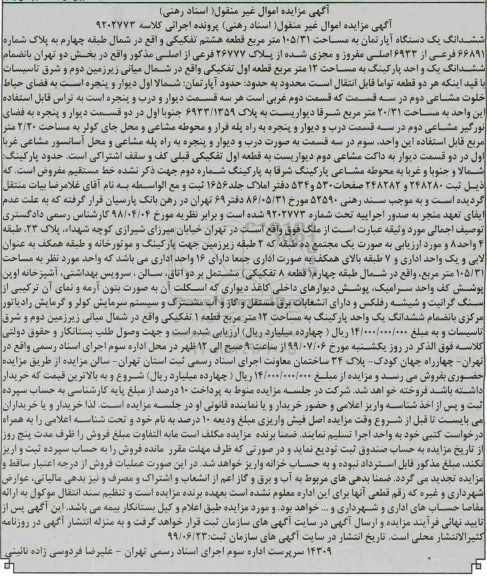 آگهی مزایده اموال غیر منقول( اسناد رهنی)
آگهی مزایده اموال غیر منقول( اسناد رهنی) پرونده اجرائی کلاسه ۹۲۰۲۷۷۳
ششدانگ یک دستگاه آپارتمان به مساحت ۱۰۵/۳۱ متر مربع قطعه هشتم تفکیکی واقع در شمال طبقه چهارم به پلاک شماره
۶۶۸۹۱ فرعی از ۶۹۳۳ اصلی مفروز و مجزی شده از پلاک ۲۶۷۷۷ فرعی از اصلی مذکور واقع در بخش دو تهران بانضمام
ششدانگ یک واحد پارکینگ به مساحت ۱۲ متر مربع قطعه اول تفکیکی واقع در شمال میانی زیرزمین دوم و شرق تاسیسات
با قید اینکه هر دو قطعه تواما قابل انتقال است محدود به حدود: حدود آپارتمان: شمالا اول دیوار و پنجره است به فضای حیاط
خلوت مشاعی دوم در سه قسمت که قسمت دوم غربی است هر سه قسمت دیوار و درب و پنجره است به تراس قابل استفاده
این واحد به مساحت ۲۰/۳۱ متر مربع شرقا دیواریست به پلاک ۶۹۳۳/۱۳۵۹ جنوبا اول در دو قسمت دیوار و پنجره به فضای
نورگیر مشاعی دوم در سه قسمت درب و دیوار و پنجره به راه پله فرار و محوطه مشاعی و محل جای کولر به مساحت ۲/۲۰ متر
مربع قابل استفاده این واحد، سوم در سه قسمت به صورت درب و دیوار و پنجره به راه پله مشاعی و محل آسانسور مشاعی غربا
اول در دو قسمت دیوار به داکت مشاعی دوم دیواریست به قطعه اول تفکیکی قبلی کف و سقف اشتراکی است. حدود پارکینگ:
شمالا و جنوبا و غربا به محوطه مشاعی پارکینگ شرقا به پارکینگ شماره دوم جهت ذکر نشده خط مستقیم مفروض است. که
ذیل ثبت ۲۴۸۲۸۰ و ۲۴۸۲۸۲ صفحات۵۳۰ و ۵۳۴ دفتر املاک جلد۱۶۵۶ ثبت و مع الواسطه به نام آقای غلامرضا بیات منتقل
گردیده است و به موجب سند رهنی ۵۲۵۹۰ مورخ ۸۶/۰۵/۳۱ دفتر۶۹ تهران در رهن بانک پارسیان قرار گرفته که به علت عدم
ایفای تعهد منجر به صدور اجراییه تحت شماره ۹۲۰۲۷۷۳ شده است و برابر نظریه مورخ ۹۸/۰۴/۰۴ کارشناس رسمی دادگستری
توصیف اجمالی مورد وثیقه عبارت است از ملک فوق واقع است در تهران خیابان میرزای شیرازی کوچه شهداء، پلاک ۲۳، طبقه
۴ واحد۸ و مورد ارزیابی به صورت یک مجتمع ده طبقه که ۲ طبقه زیرزمین جهت پارکینگ و موتورخانه و طبقه همکف به عنوان
لابی و یک واحد اداری و ۷ طبقه بالای همکف به صورت اداری جمعا دارای ۱۶ واحد اداری می باشد که واحد مورد نظر به مساحت
۱۰۵/۳۱ متر مربع، واقع در شمال طبقه چهارم/ قطعه۸ تفکیکی/ مشتمل بر دو اتاق، سالن ، سرویس بهداشتی، آشپزخانه اوپن
پوشش کف واحد سرامیک، پوشش دیوارهای داخلی کاغذ دیواری که اسکلت آن به صورت بتون آرمه و نمای آن ترکیبی از
سنگ گرانیت و شیشه رفلکس و دارای انشعابات برق مستقل و گاز و آب مشترک و سیستم سرمایش کولر و گرمایش رادیاتور
مرکزی بانضمام ششدانگ یک واحد پارکینگ به مساحت ۱۲ متر مربع قطعه ۱ تفکیکی واقع در شمال میانی زیرزمین دوم و شرق
تاسیسات و به مبلغ ۱۴/۰۰۰/۰۰۰/۰۰۰ ریال ( چهارده میلیارد ریال) ارزیابی شده است و جهت وصول طلب بستانکار و حقوق دولتی
کلاسه فوق الذکر در روز یکشنبه مورخ ۹۹/۰۷/۰۶ از ساعت ۹ صبح الی ۱۲ ظهر در محل اداره سوم اجرای اسناد رسمی واقع در
تهران- چهارراه جهان کودک- پلاک ۳۴ ساختمان معاونت اجرای اسناد رسمی ثبت استان تهران- سالن مزایده از طریق مزایده
حضوری بفروش می رسد و مزایده از مبلغ ۱۴/۰۰۰/۰۰۰/۰۰۰ ریال ( چهارده میلیارد ریال) شروع و به بالاترین قیمت که خریدار
داشته باشد فروخته خواهد شد. شرکت در جلسه مزایده منوط به پرداخت ۱۰ درصد از مبلغ پایه کارشناسی به حساب سپرده
ثبت و پس از اخذ شناسه واریز اعلامی و حضور خریدار و یا نماینده قانونی او در جلسه مزایده است. لذا خریدار و یا خریداران
می بایست تا قبل از شروع وقت مزایده اصل فیش واریزی مبلغ ودیعه ۱۰ درصد به نام خود و تحت شناسه اعلامی را به همراه
درخواست کتبی خود به واحد اجرا تسلیم نمایند. ضمنا برنده مزایده مکلف است مابه التفاوت مبلغ فروش را ظرف مدت پنج روز
از تاریخ مزایده به حساب صندوق ثبت تودیع نماید و در صورتی که ظرف مهلت مقرر مانده فروش را به حساب سپرده ثبت واریز
نکند، مبلغ مذکور قابل استرداد نبوده و به حساب خزانه واریز خواهد شد. در این صورت عملیات فروش از درجه اعتبار ساقط و
مزایده تجدید می گردد. ضمنا بدهی های مربوط به آب و برق و گاز اعم از انشعاب و اشتراک و مصرف و نیز بدهی مالیاتی، عوارض
شهرداری و غیره که رقم قطعی آنها برای این اداره معلوم نشده است بعهده برنده مزایده است و تنظیم سند انتقال موکول به ارائه
مفاصا حساب های اداری و شهرداری و ... خواهد بود. و مورد مزایده طبق اعلام و کیل بستانکار بیمه می باشد. این آگهی پس از
تایید نهائی فرآیند مزایده و ارسال آگهی در سایت آگهی های سازمان ثبت قرار خواهد گرفت و به منزله انتشار آگهی در روزنامه
کثیرالانتشار محلی است. تاریخ انتشار در سایت آگهی های سازمان ثبت: ۹۹/۰۶/۲۳
۱۴۳۰۹ سرپرست اداره سوم اجرای اسناد رسمی تهران - علیرضا فردوسی زاده نائینی